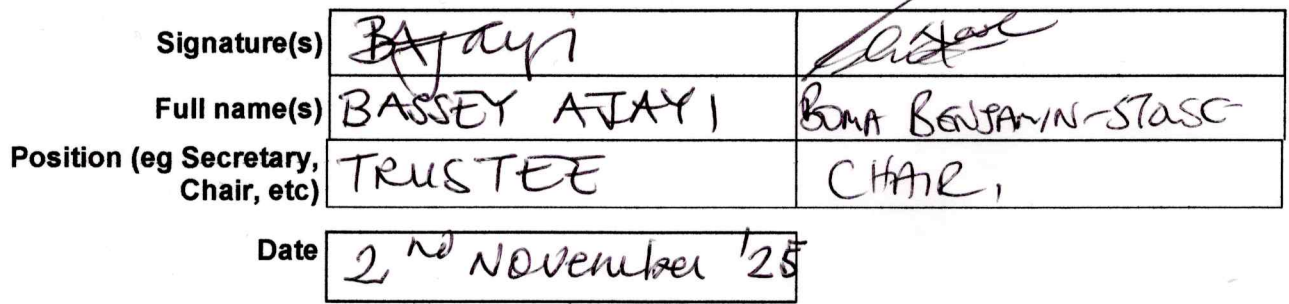 Signature(s) BAjayi
Full name(s) BASSEY AJAYI BOMA BENJAMIN-
Position (eg Secretary, TRUSTEE CHAIR,
Chair, etc)
Date 2nd November '25